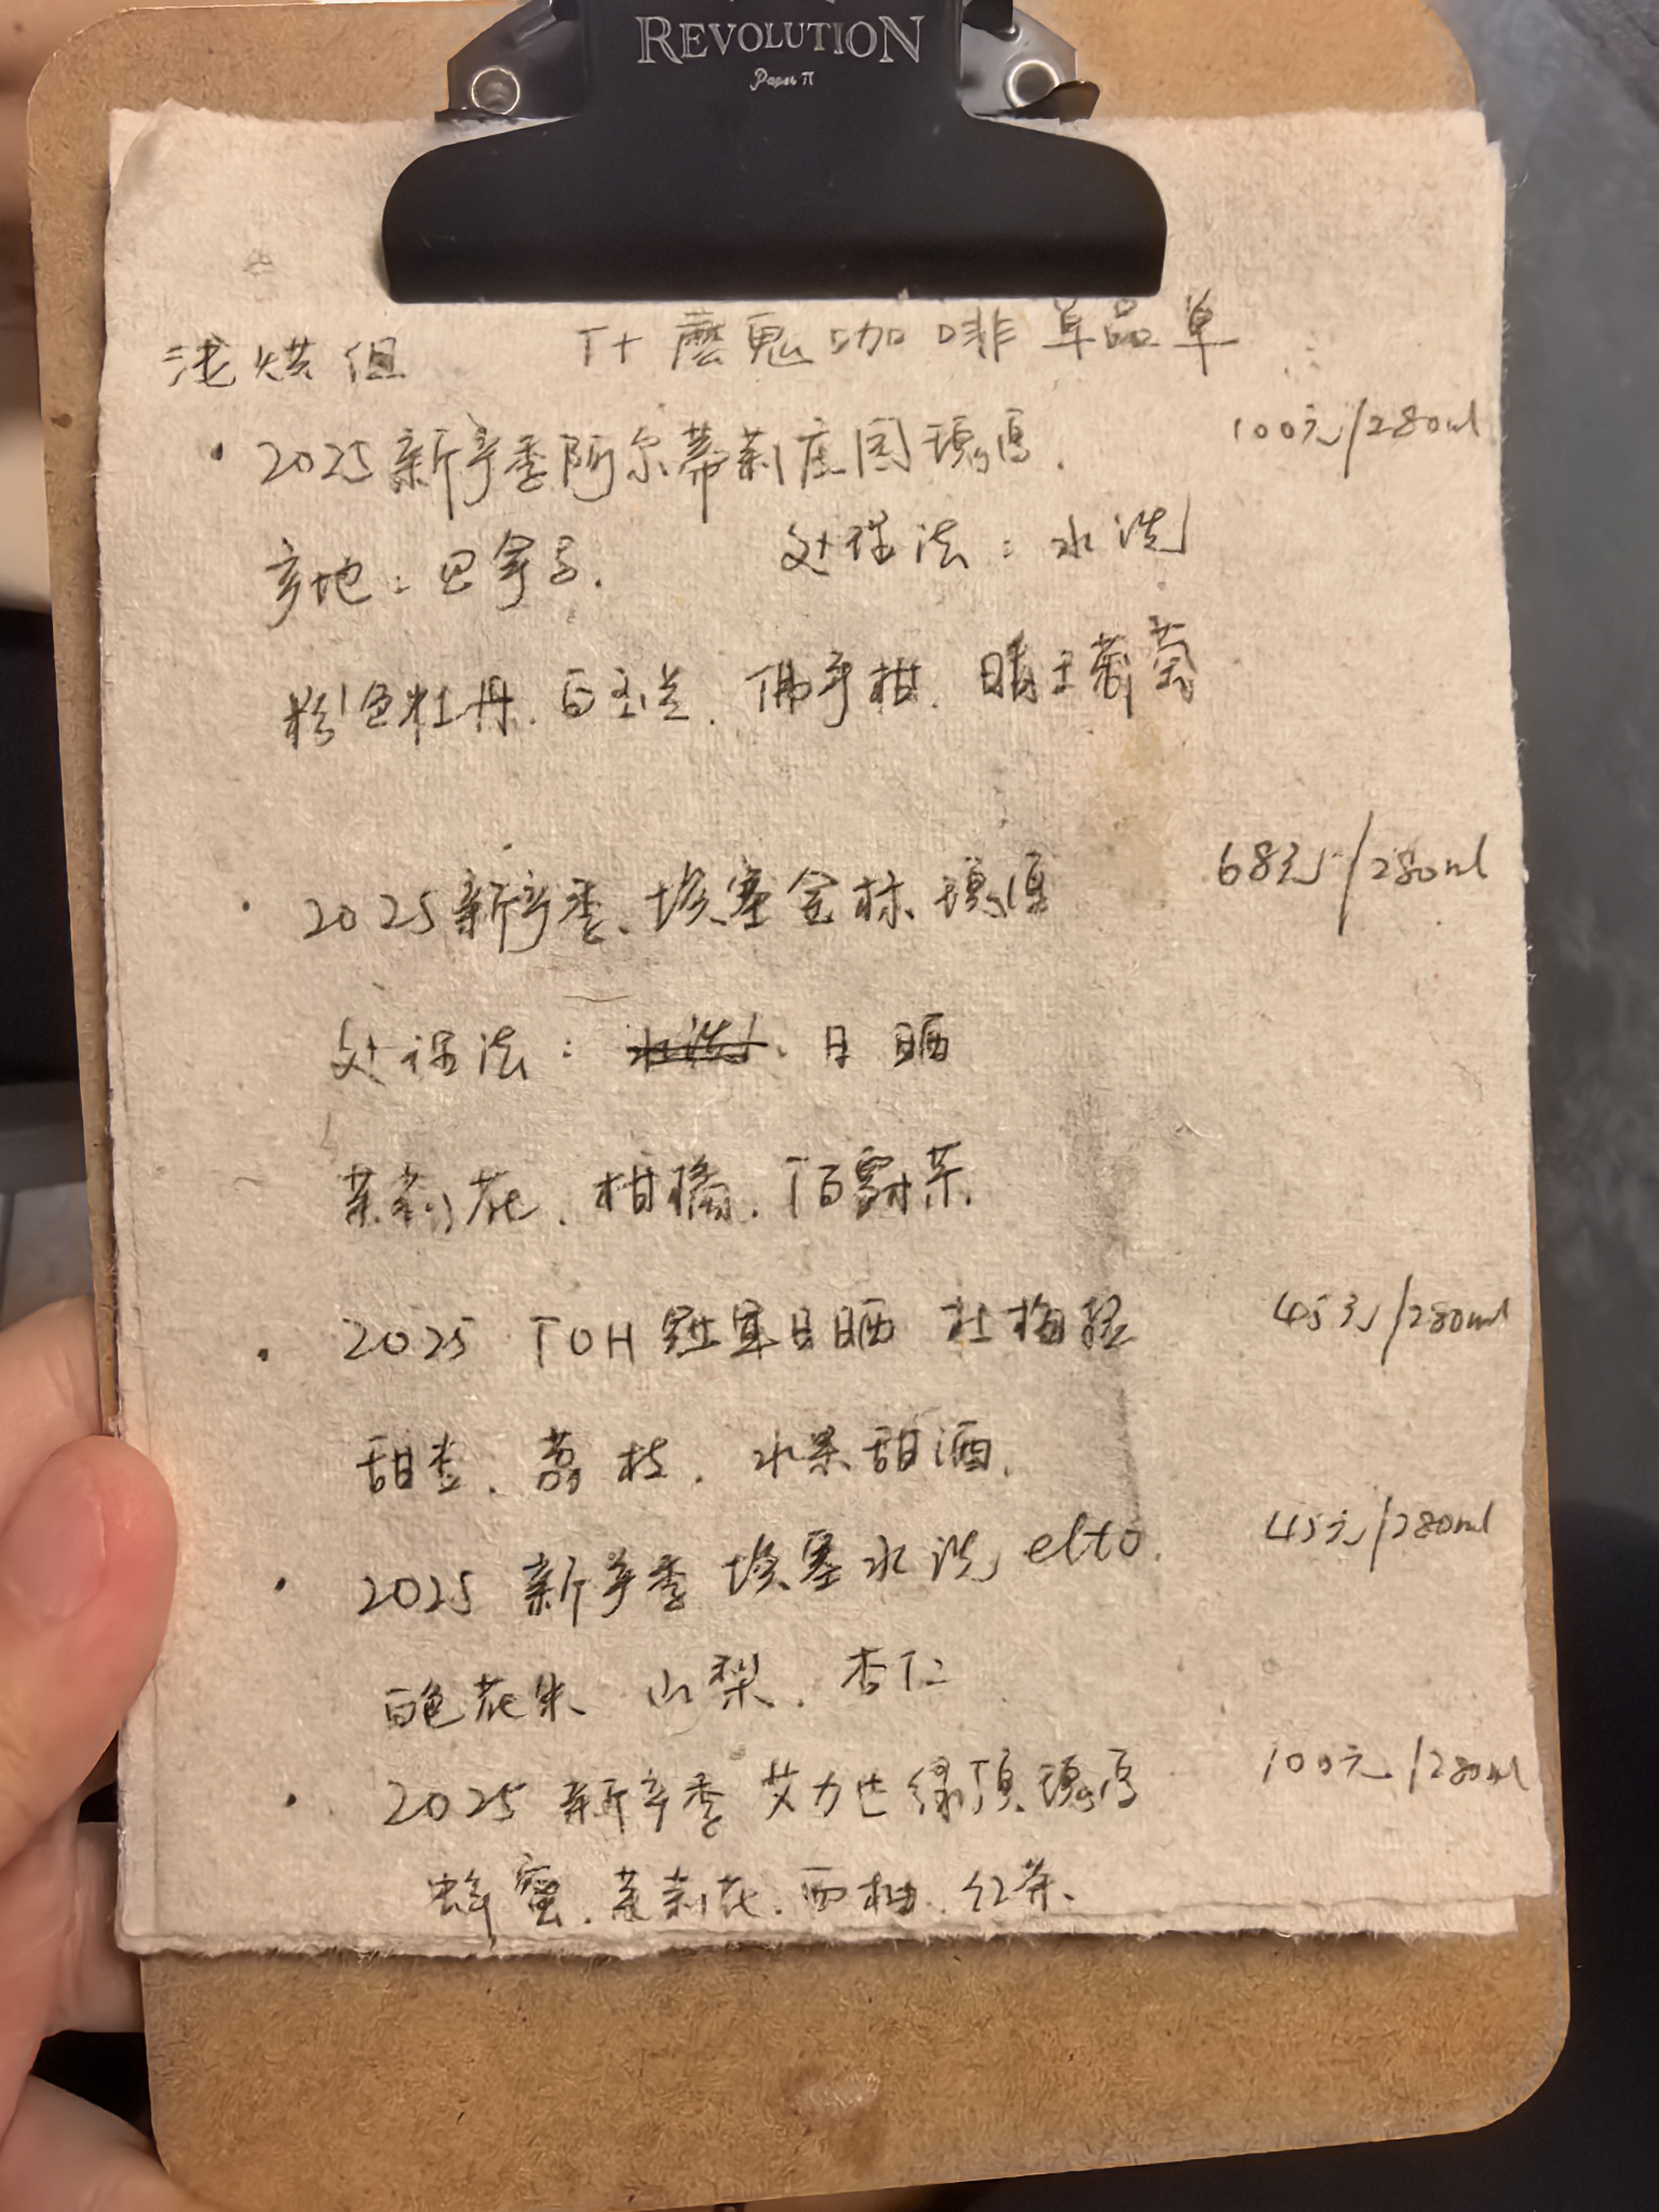 REVOLUTION
Paper π
T+ 磨鬼咖啡单品单
浅烘组
• 2025新产季阿尔蒂莉庄园瑰夏. 100元/280ml
产地:巴拿马. 处理法:水洗
粉色牡丹.白玉兰.佛手柑.晴王葡萄
• 2025新产季.埃塞金标瑰夏 68元/280ml
处理法:水洗.日晒
茉莉花.柑橘.伯爵茶.
• 2025 TOH 冠军日晒 杜梅索 45元/280ml
甜李.荔枝.水果甜酒.
• 2025 新产季 埃塞水洗 elto. 45元/280ml
白色花朵 山梨.杏仁
• 2025 新产季 艾力达绿顶瑰夏 100元/280ml
蜂蜜.茉莉花.西柚.红茶.